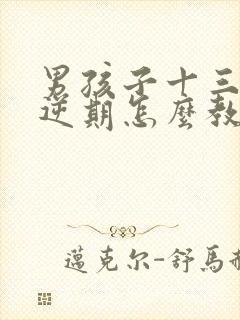 男孩子十三
逆期怎麼教
邁克尔-舒馬赫